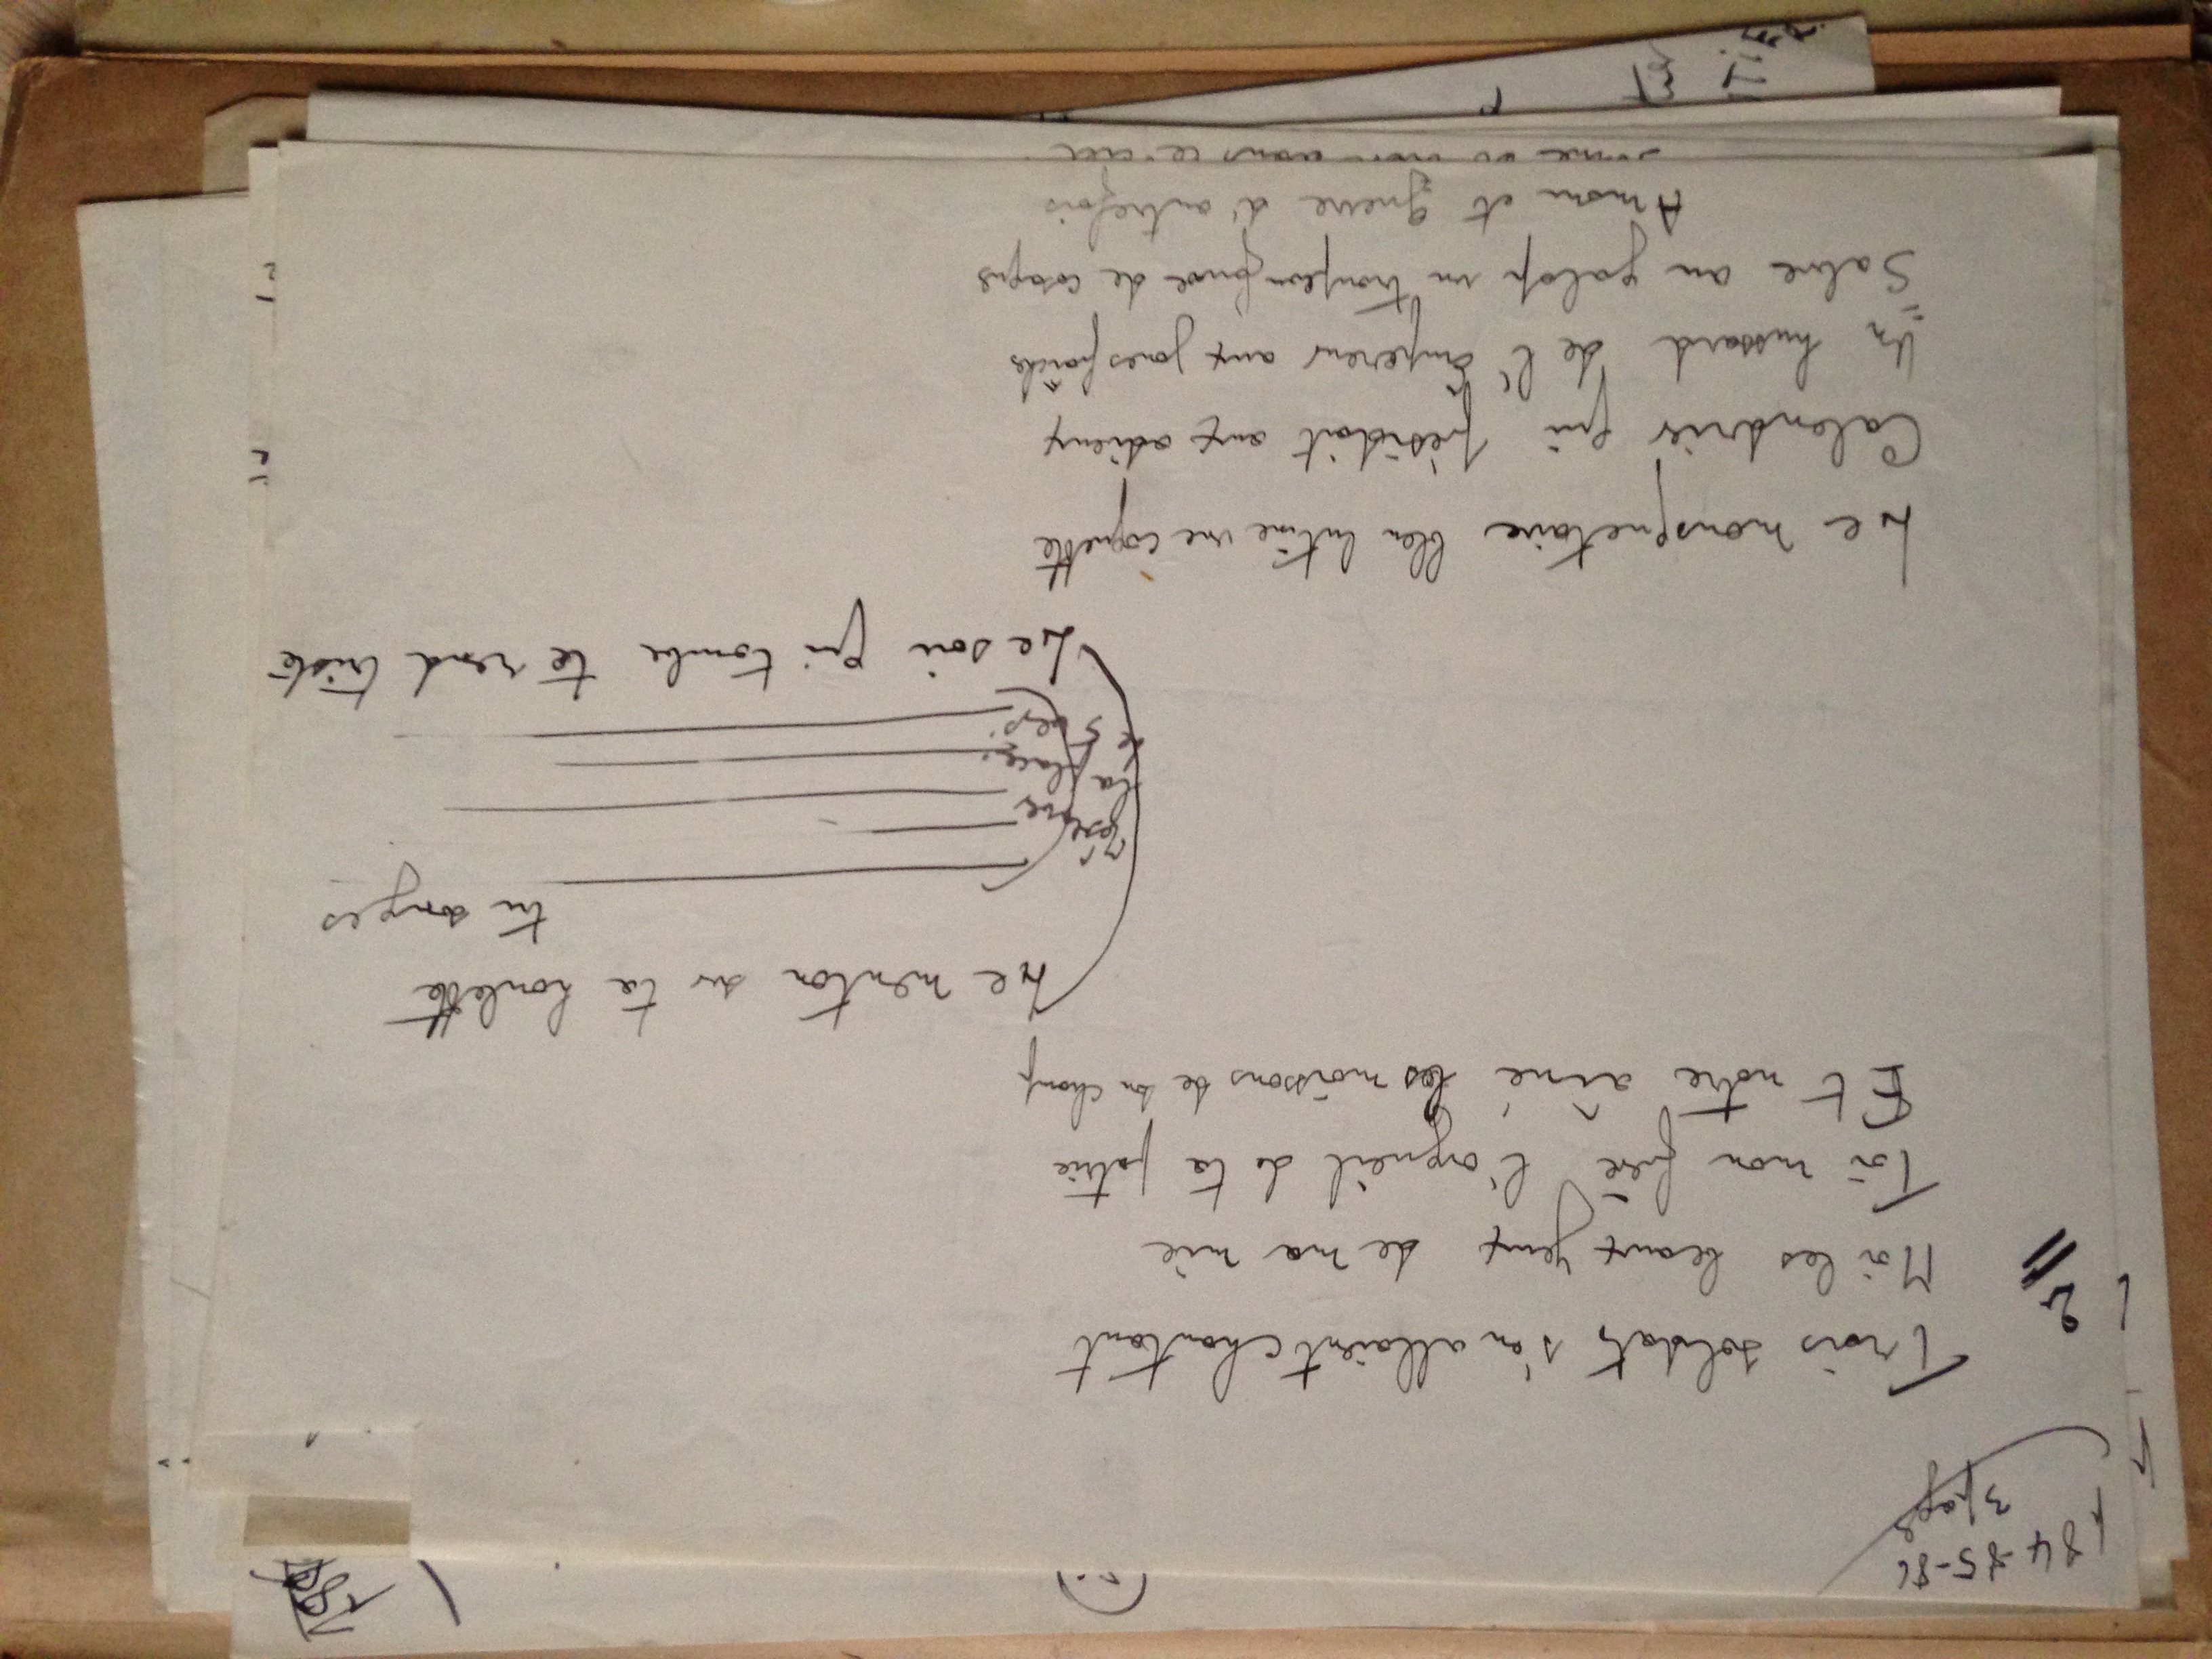 p 84-85-86
3 pages
2
Trois soldats s'en allaient chantant
Moi les beaux yeux de ma mie
Toi mon frère l'orgueil de ta patrie
Et notre aîné les moissons de son champ
Le menton sur ta houlette
tu songes
réserver
la place
de 5 vers
Le soir qui tombe te rend triste
Le mousquetaire bleu lutine une coquette
Calendrier qui présidait aux adieux
Un hussard de l'Empereur aux joues fraîches
Sabre au galop un troupeau fauve de cosaques
Amour et guerre d'autrefois